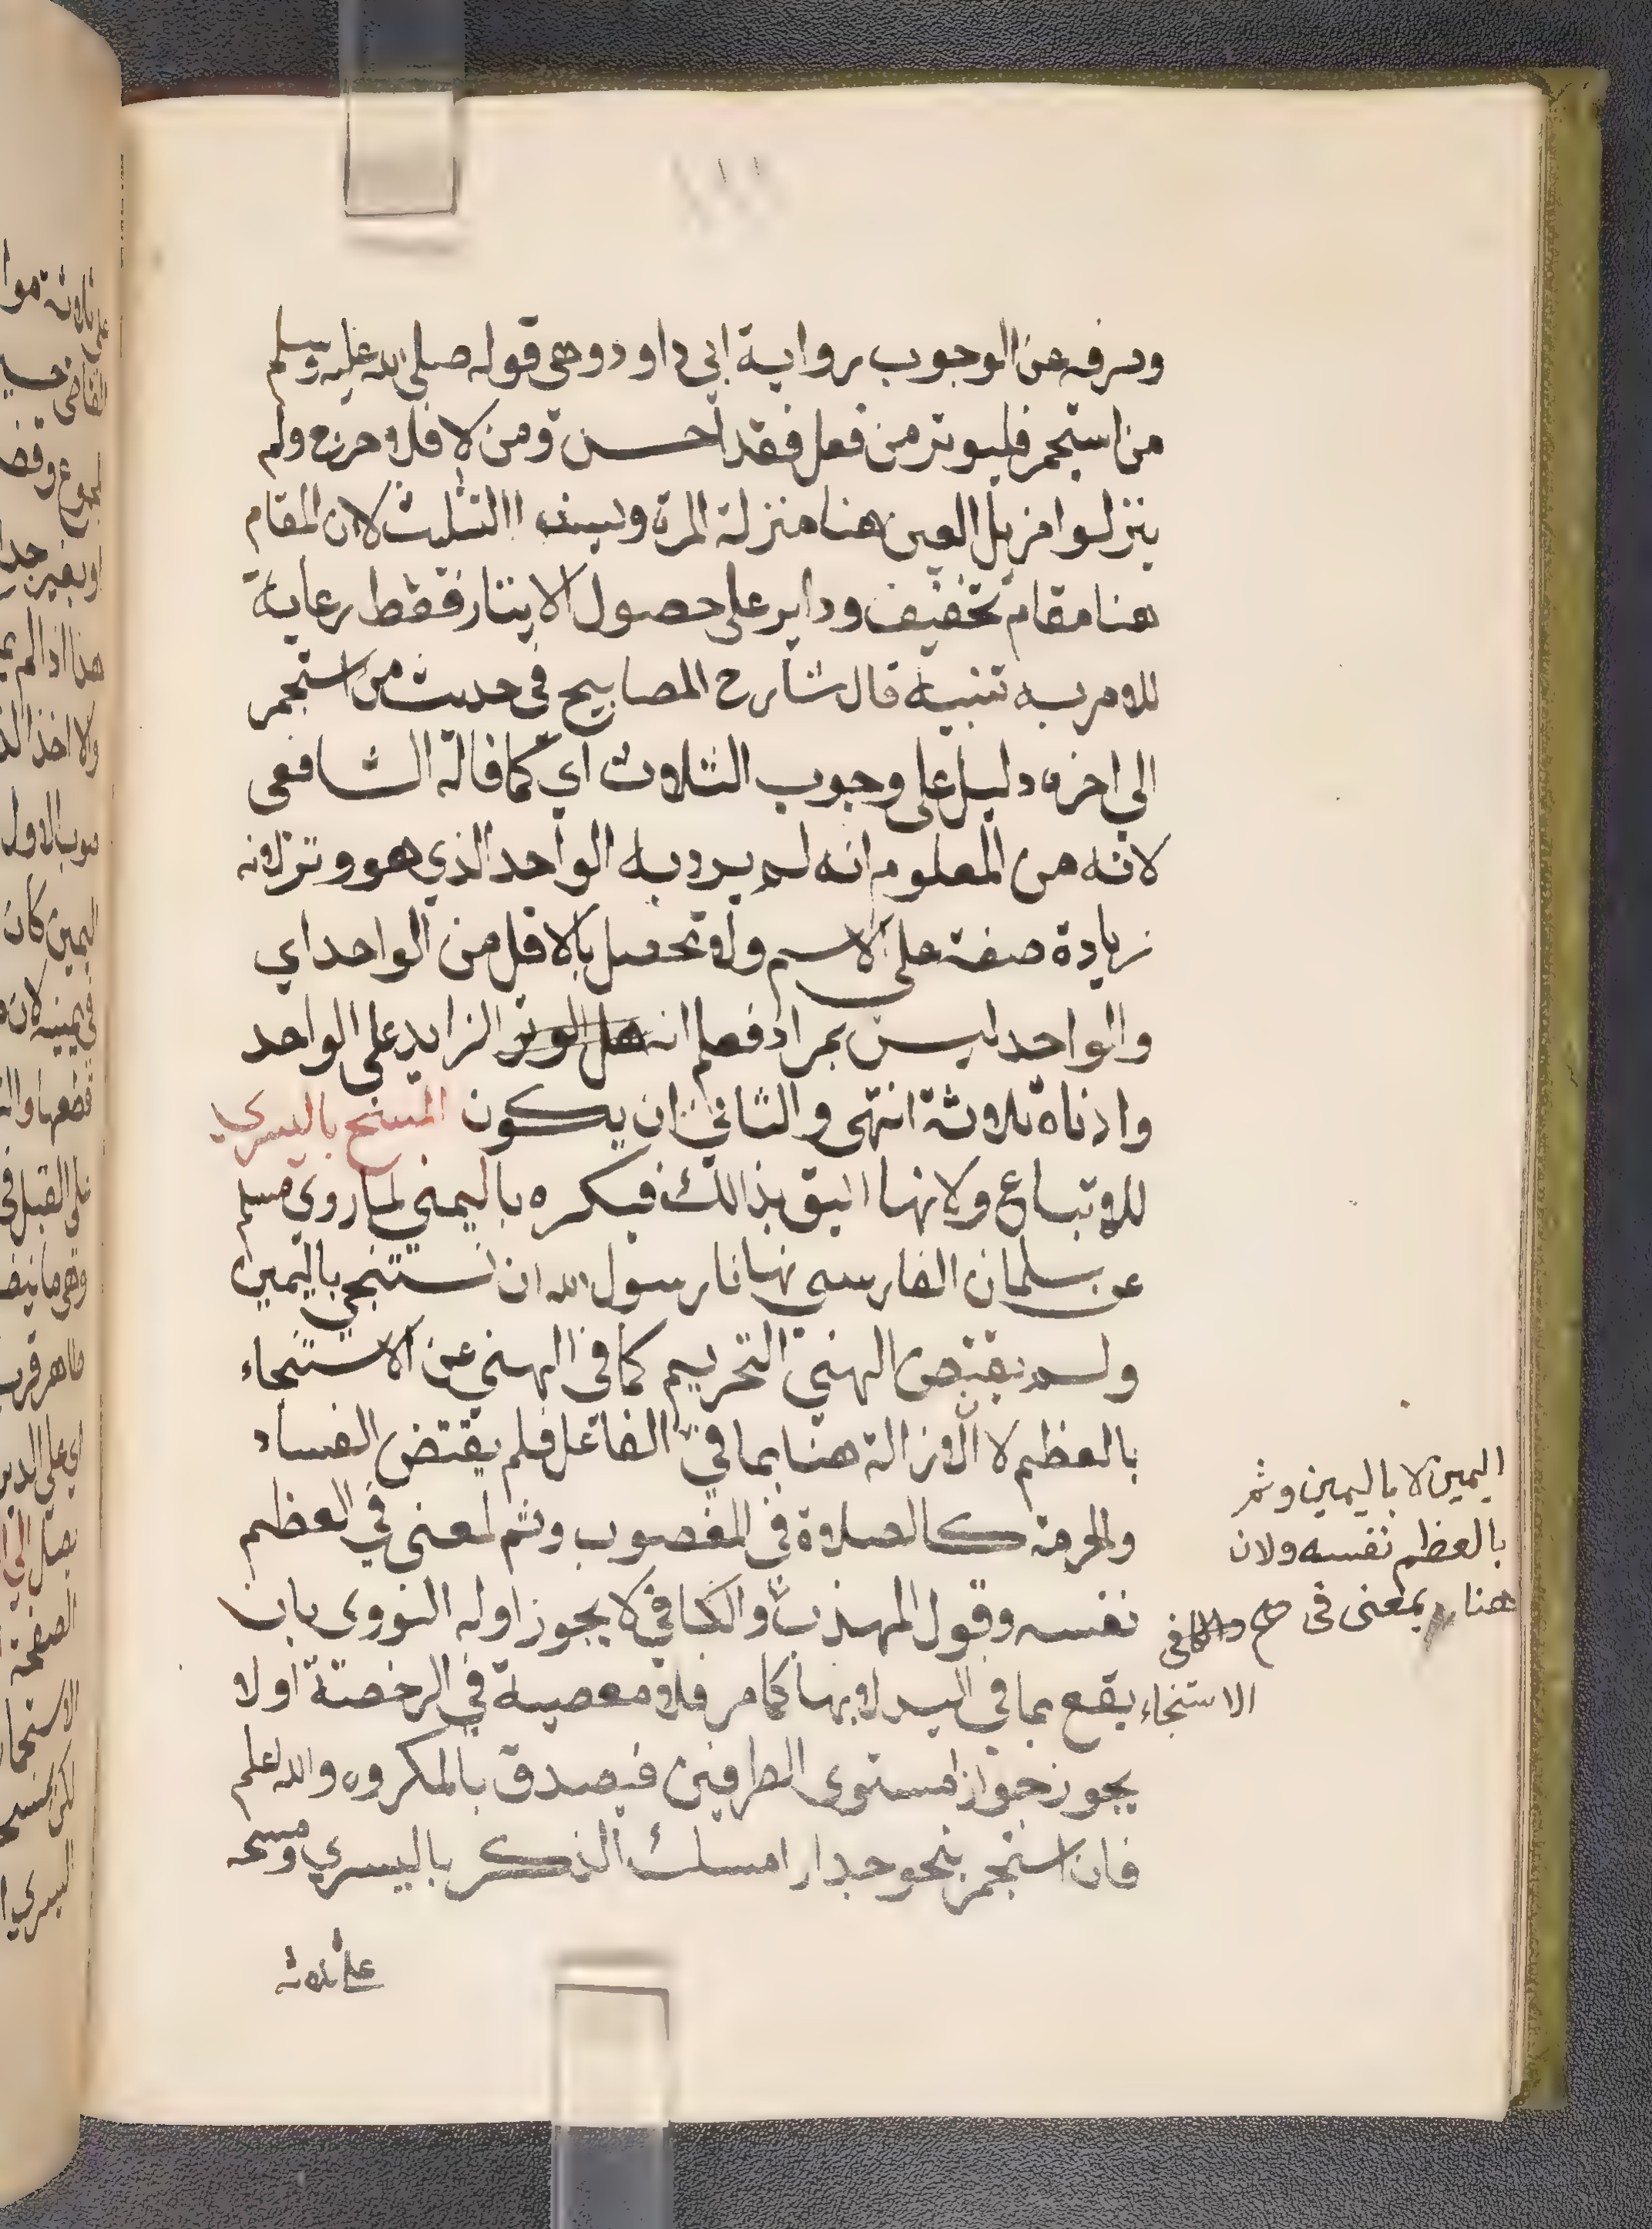 وصرفه عن الوجوب رواية ابي داود وهي قوله صلى الله عليه وسلم
من استجمر فليوتر من فعل فقد احسن ومن لا فلا حرج ولم
ينزلوا مزيل العين هنا منزلة المرة ويسن التثليث لان المقام
هنا مقام تخفيف وداير على حصول الايتار فقط رعاية
للامر به تنبيه قال شارح المصابيح في حديث من استجمر
الى اخره دليل على وجوب الثلاث اي كما قاله الشافعي
لانه من المعلوم انه لم يرد به الواحد الذي هو وتر لانه
زيادة صفة على الاسم ولا تحصل بالاقل من الواحد اي
والواحد ليس بمراد فعلم انه الزايد على الواحد
وادناه ثلاثة انتهى والثاني ان يكون المسح باليسري
للاتباع ولانها اليق بذالك فيكره باليمني لما روي مسلم
عن سلمان الفارسي نهانا رسول الله ان نستنجي باليمين
ولم يقتض النهي التحريم كما في النهي عن الاستنجاء
بالعظم لان الازالة هنا بما في الفاعل فلم يقتض الفساد
والحرمة كالصلاة في المغصوب وثم لمعنى في العظم
نفسه وقول المهذب والكافي لا يجوز اوله النووي بان
الاستنجاء يقع بما في اليد لا بها كما مر فلا معصية في الرخصة او لا
يجوز جواز مستوى الطرفين فيصدق بالمكروه والله اعلم
فان استجمر بنحو جدار امسك الذكر باليسري ومسحه
على ثلاثة
اليمين لا باليمين وثم
بالعظم نفسه ولان
هنا بمعنى في